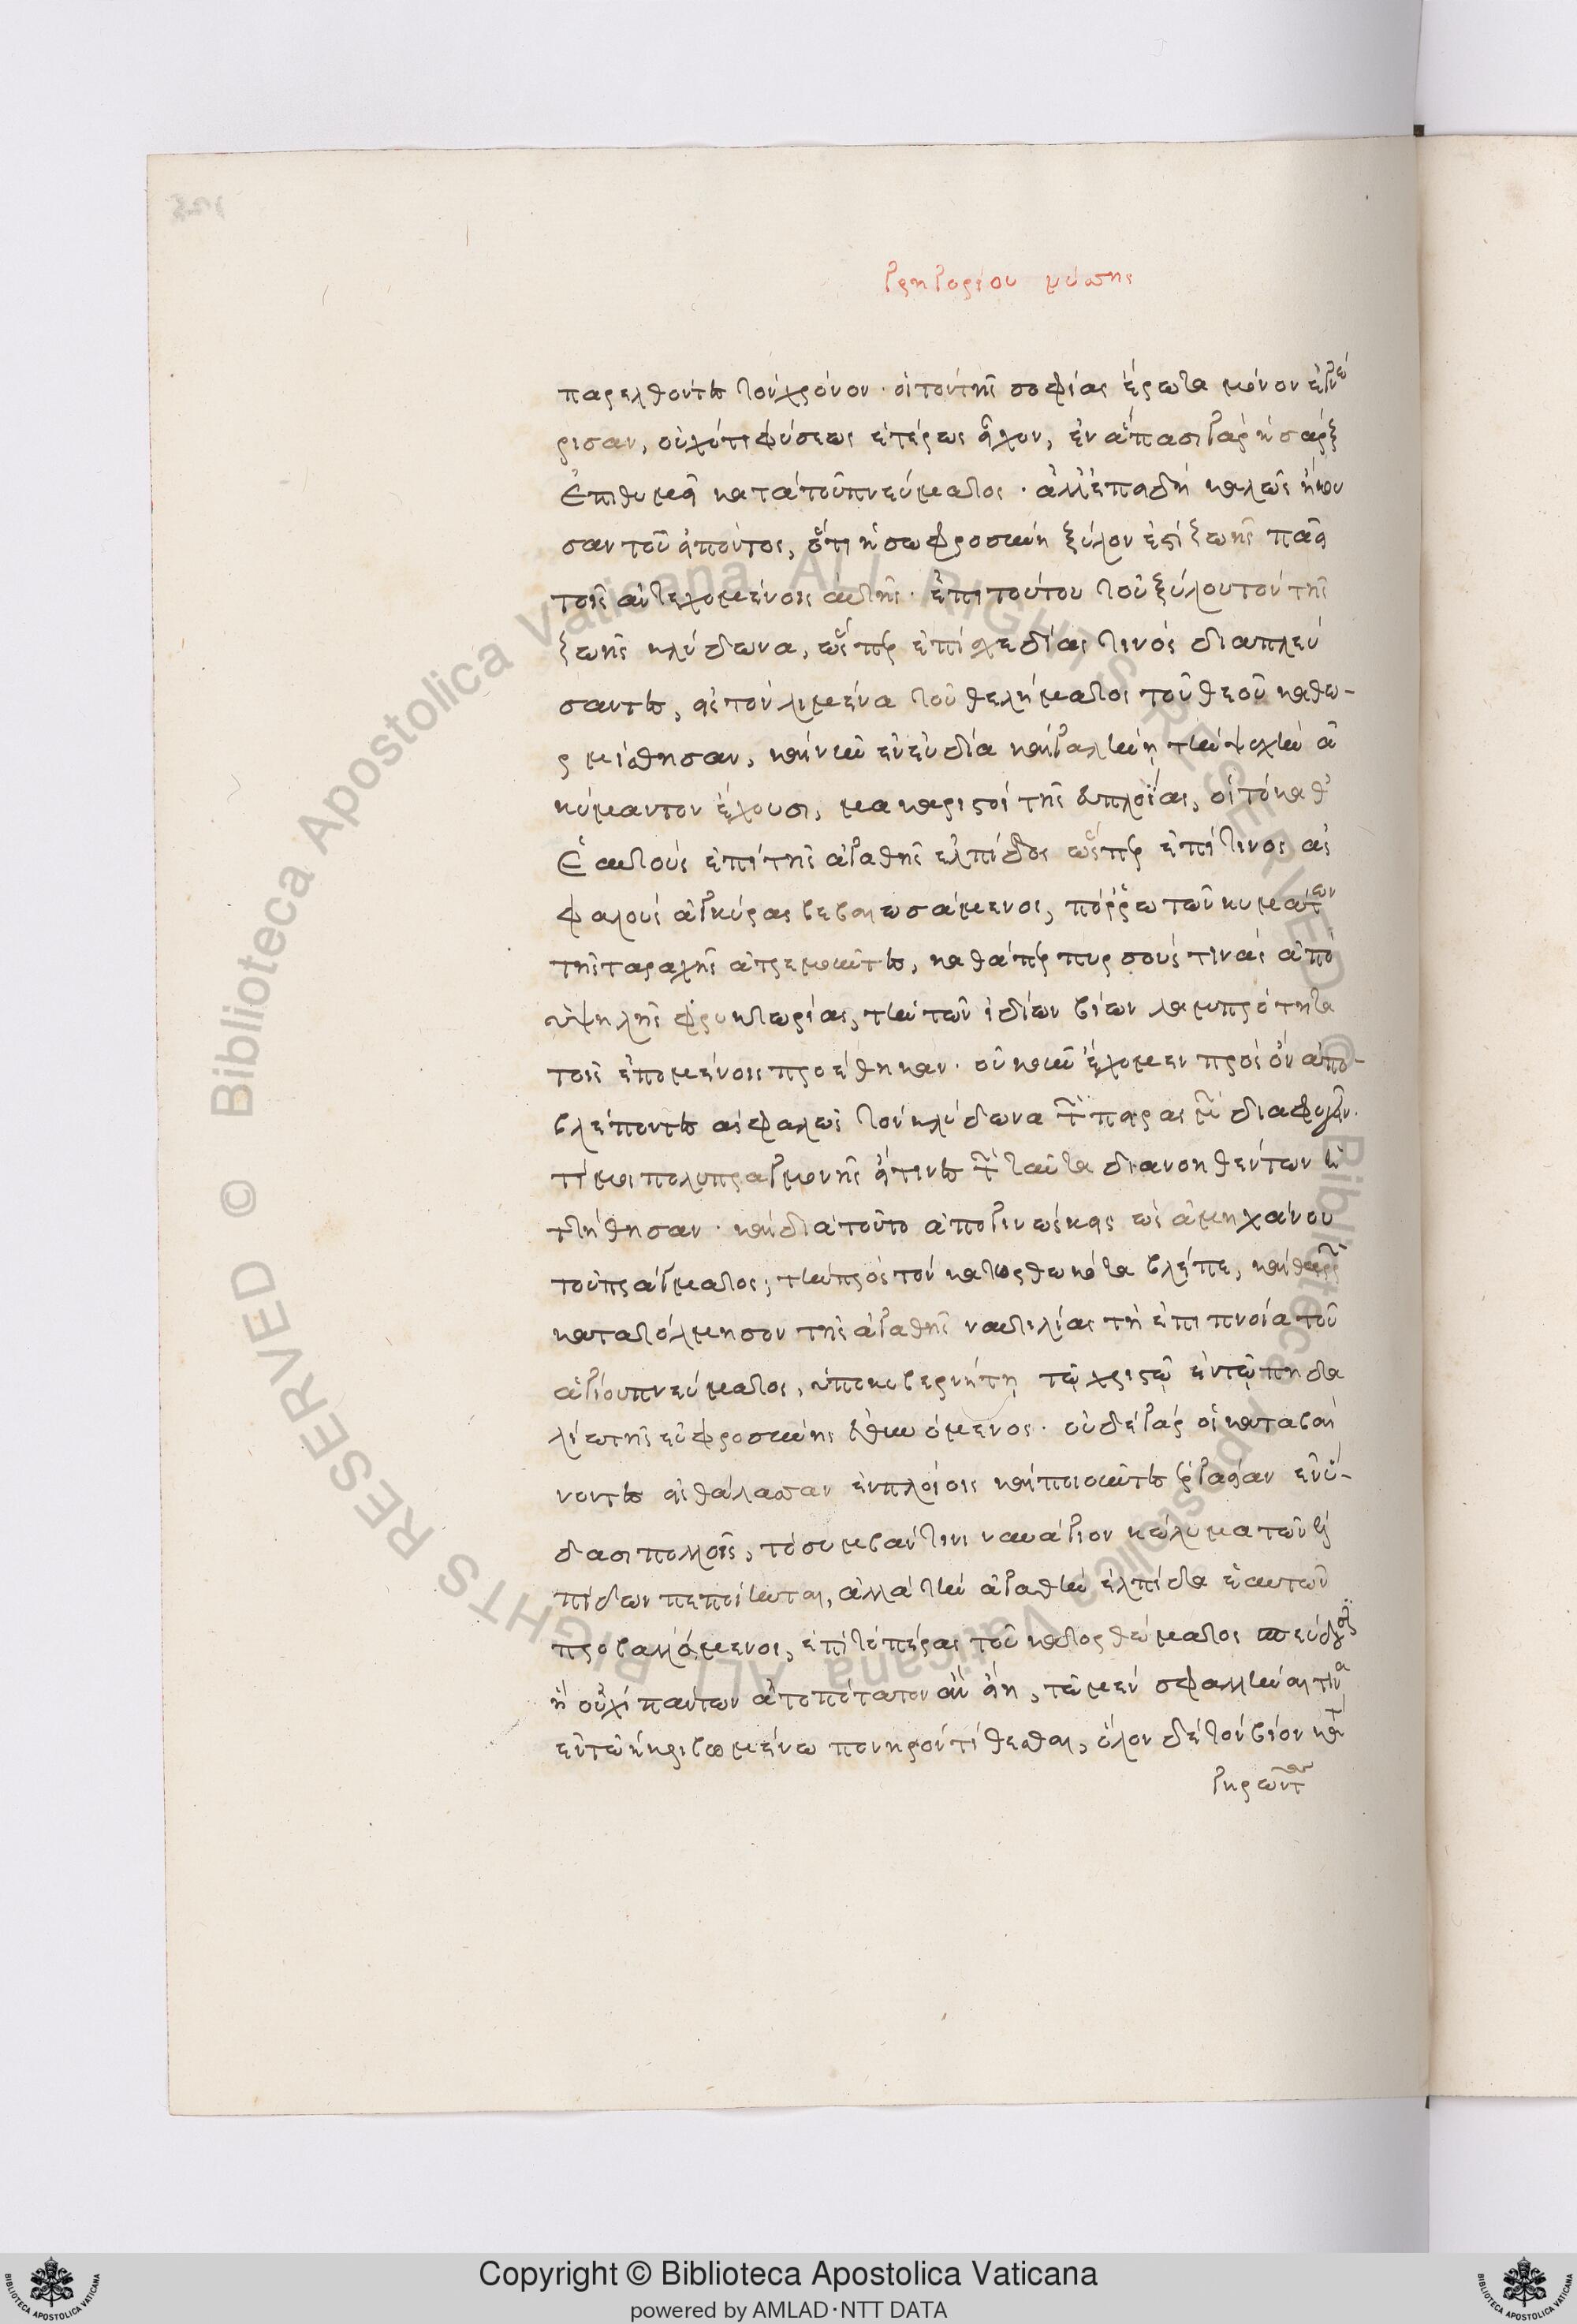 Γρηγορίου νύσσης
παρελθόντες τὸν χρόνον· οἱ τὸν τῆς σοφίας ἔρωτα μόνον ἐγνώ
ρισαν, οὐχ ὅτι φύσεως ἑτέρως εἶχον, ἐν ἅπασι γὰρ ἡ σὰρξ
ἐπιθυμεῖ κατὰ τοῦ πνεύματος· ἀλλ' ἐπειδὴ καλῶς ἤκου
σαν τοῦ εἰπόντος, ὅτι ἡ σωφροσύνη ξύλον ἐστὶ ζωῆς πᾶσι
τοῖς ἀντεχομένοις αὐτῆς· ἐπὶ τούτου τοῦ ξύλου τὸν τῆς
ζωῆς κλύδωνα, ὥσπερ ἐπὶ σχεδίας τινὸς διαπλεύ
σαντες, εἰς τὸν λιμένα τοῦ θελήματος τοῦ θεοῦ καθω-
ρμίσθησαν, καὶ νῦν ἐν εὐδία καὶ γαλήνῃ τὴν ψυχὴν ἀ
κύμαντον ἔχουσι, μακαριστοὶ τῆς εὐπλοΐας, οἳ τὸ καθ'
ἑαυτοὺς ἐπὶ τῆς ἀγαθῆς ἐλπίδος ὥσπερ ἐπί τινος ἀσ
φαλοῦς ἀγκύρας βεβαιωσάμενοι, πόρρω τῶν κυμάτων
τῆς ταραχῆς ἀτρεμοῦντες, καθάπερ πυρσούς τινας ἀπὸ
ὑψηλῆς φρυκτωρίας, τὴν τῶν ἰδίων βίων λαμπρότητα
τοῖς ἑπομένοις προέθηκαν· οὐκοῦν ἔχομεν πρὸς ὃν ἀπο-
βλέποντες ἀσφαλῶς τὸν κλύδωνα τῶν πειρασμῶν διαφυγεῖν·
τί μοι πολυπραγμονεῖς εἴ τινες τῶν ταῦτα διανοηθέντων ἡ
ττήθησαν· καὶ διὰ τοῦτο ἀπογινώσκεις ὡς ἀμηχάνου
τοῦ πράγματος; τὴν πρὸς τὸν κατωρθωκότα βλέπε, καὶ θαρρῶν
κατατόλμησον τῆς ἀγαθῆς ναυτιλίας τῇ ἐπιπνοία τοῦ
ἁγίου πνεύματος, ὑπὸ κυβερνήτῃ τῷ χριστῷ ἐν τῷ πηδα
λίω τῆς εὐφροσύνης εὐθυνόμενος· οὐδὲ γὰρ οἱ καταβαί
νοντες εἰς θάλασσαν ἐν πλοίοις καὶ ποιοῦντες ἐργασίαν ἐν ὕ-
δασι πολλοῖς, τὸ συμβάν τινι ναυάγιον κώλυμα τῶν ἐλ
πίδων πεποίηνται, ἀλλὰ τὴν ἀγαθὴν ἐλπίδα ἑαυτῶν
προβαλλόμενοι, ἐπὶ τὸ πέρας τοῦ κατορθώματος σπεύδουσιν
ἢ οὐχὶ πάντων ἀτοπώτατον ἂν εἴη, τὸ μὲν σφαλῆναί τινα
ἐν τῷ ἠκριβωμένω πονηρὸν τίθεσθαι, ὅλον δὲ τὸν βίον κατ
γηρῶντα